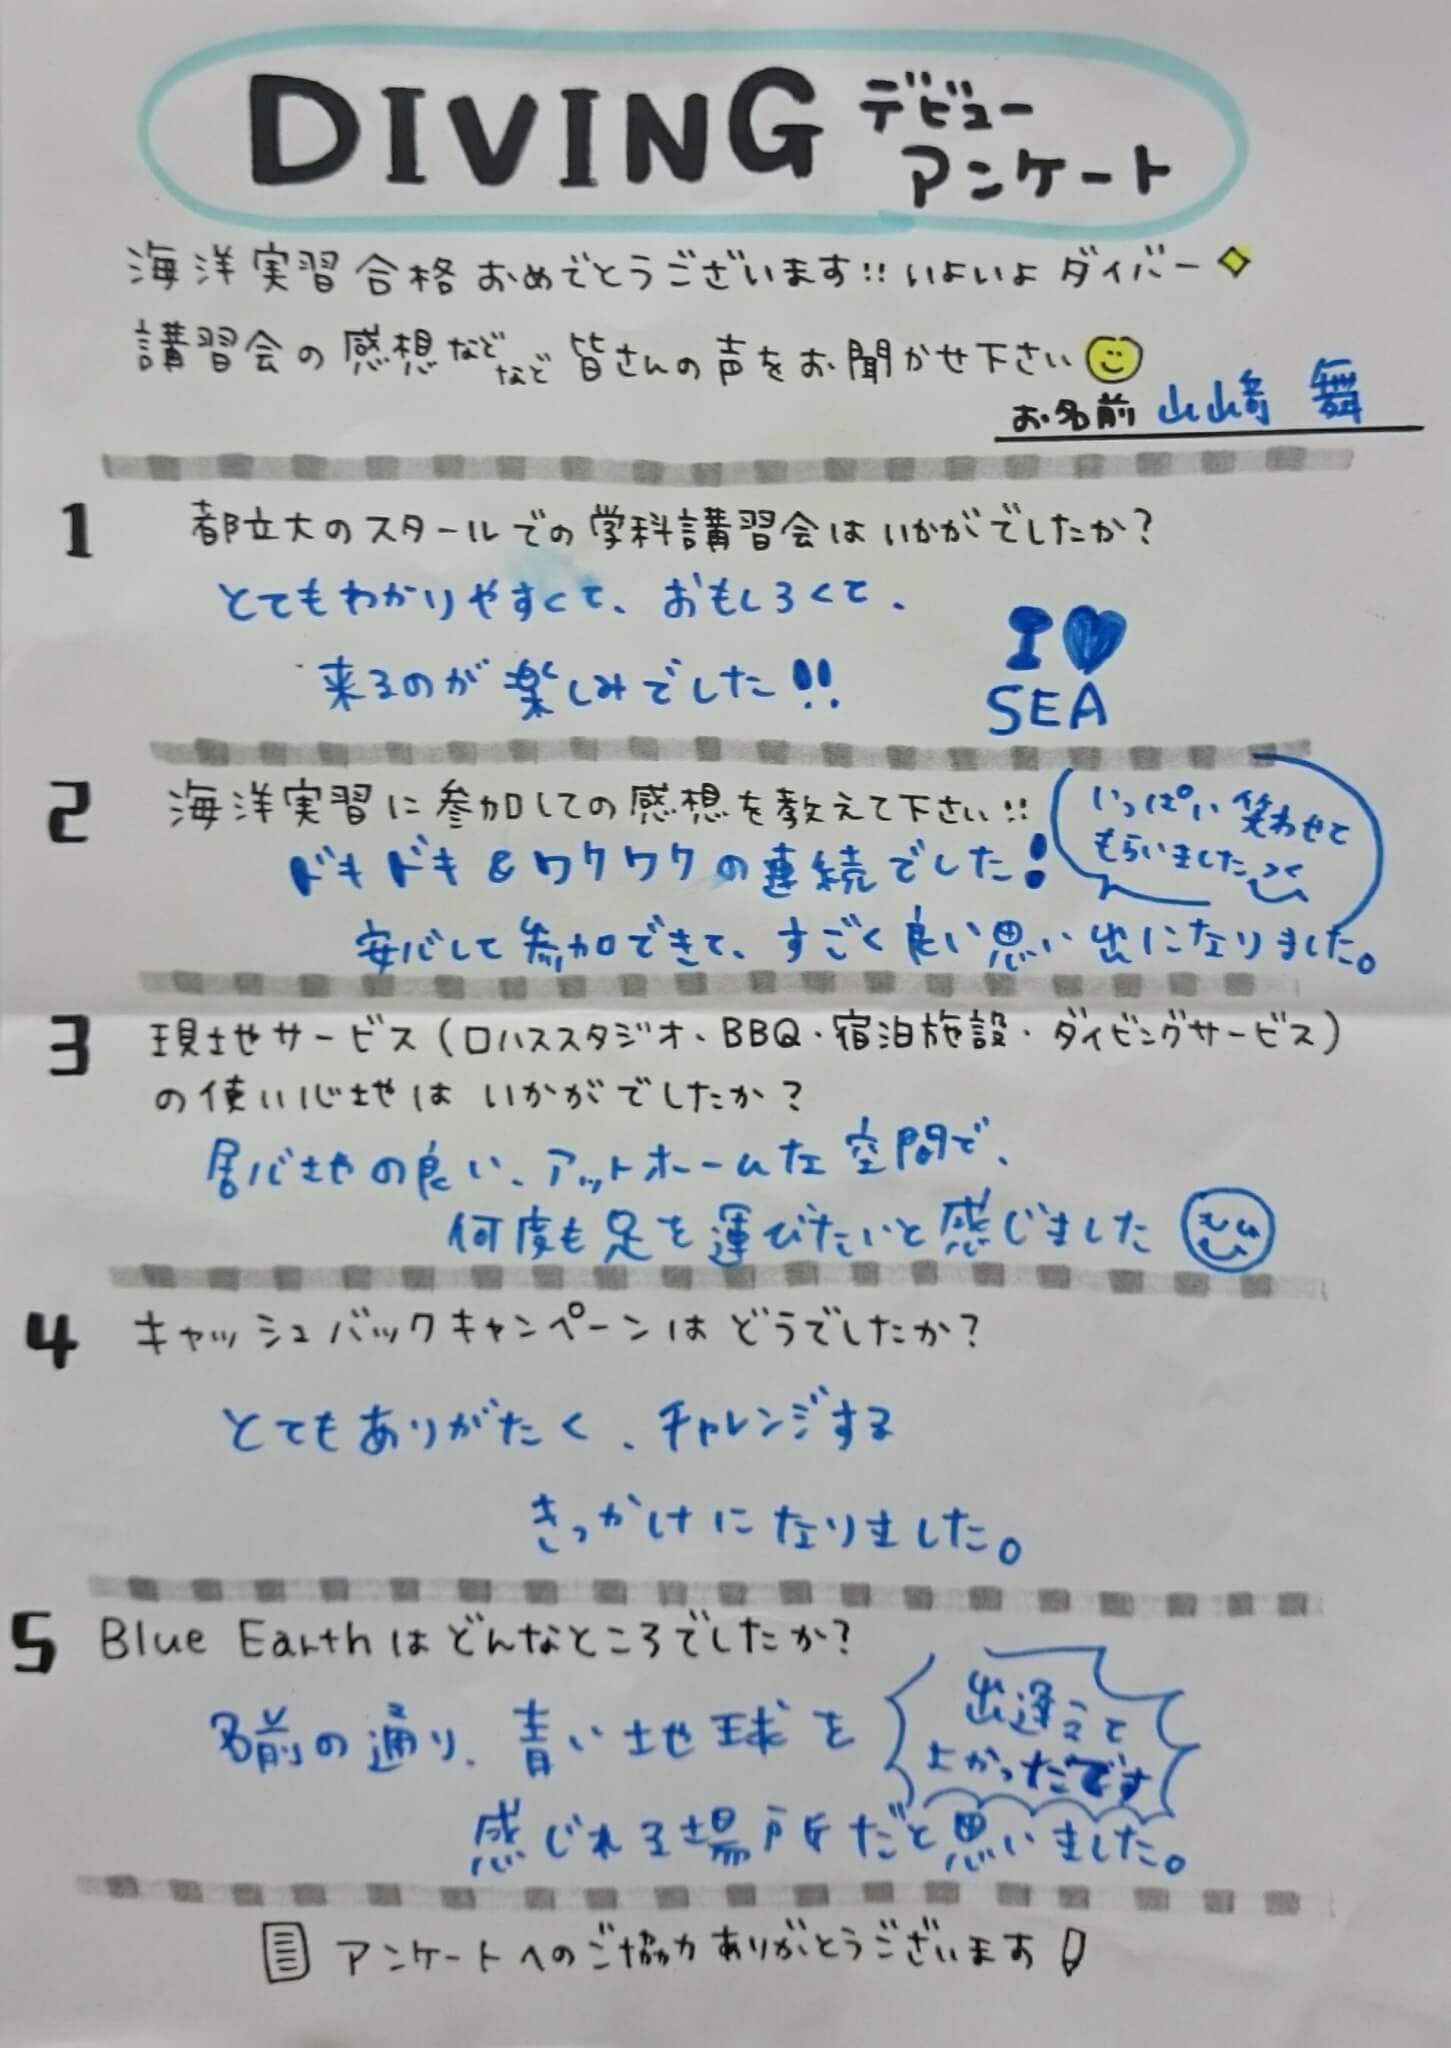 DIVING デビュー
アンケート
海洋実習合格おめでとうございます!! いよいよ ダイバー
講習会の感想などなど 皆さんの声をお聞かせ下さい
お名前 山﨑 舞
1 都立大のスタールでの学科講習会は いかがでしたか?
とてもわかりやすくて、おもしろくて、
来るのが楽しみでした!!
I ♥
SEA
2 海洋実習に参加しての感想を教えて下さい!!
ドキドキ&ワクワクの連続でした!
いっぱい笑わせて
もらいました
安心して参加できて、すごく良い思い出になりました。
3 現地サービス(ロハススタジオ、BBQ・宿泊施設・ダイビングサービス)
の使い心地は いかがでしたか?
居心地の良い、アットホームな空間で、
何度も足を運びたいと感じました
4 キャッシュバックキャンペーンは どうでしたか?
とてもありがたく、チャレンジする
きっかけになりました。
5 Blue Earthは どんなところでしたか?
名前の通り、青い地球を
感じれる場所だと思いました。
出逢えて
よかったです
アンケートへのご協力ありがとうございます